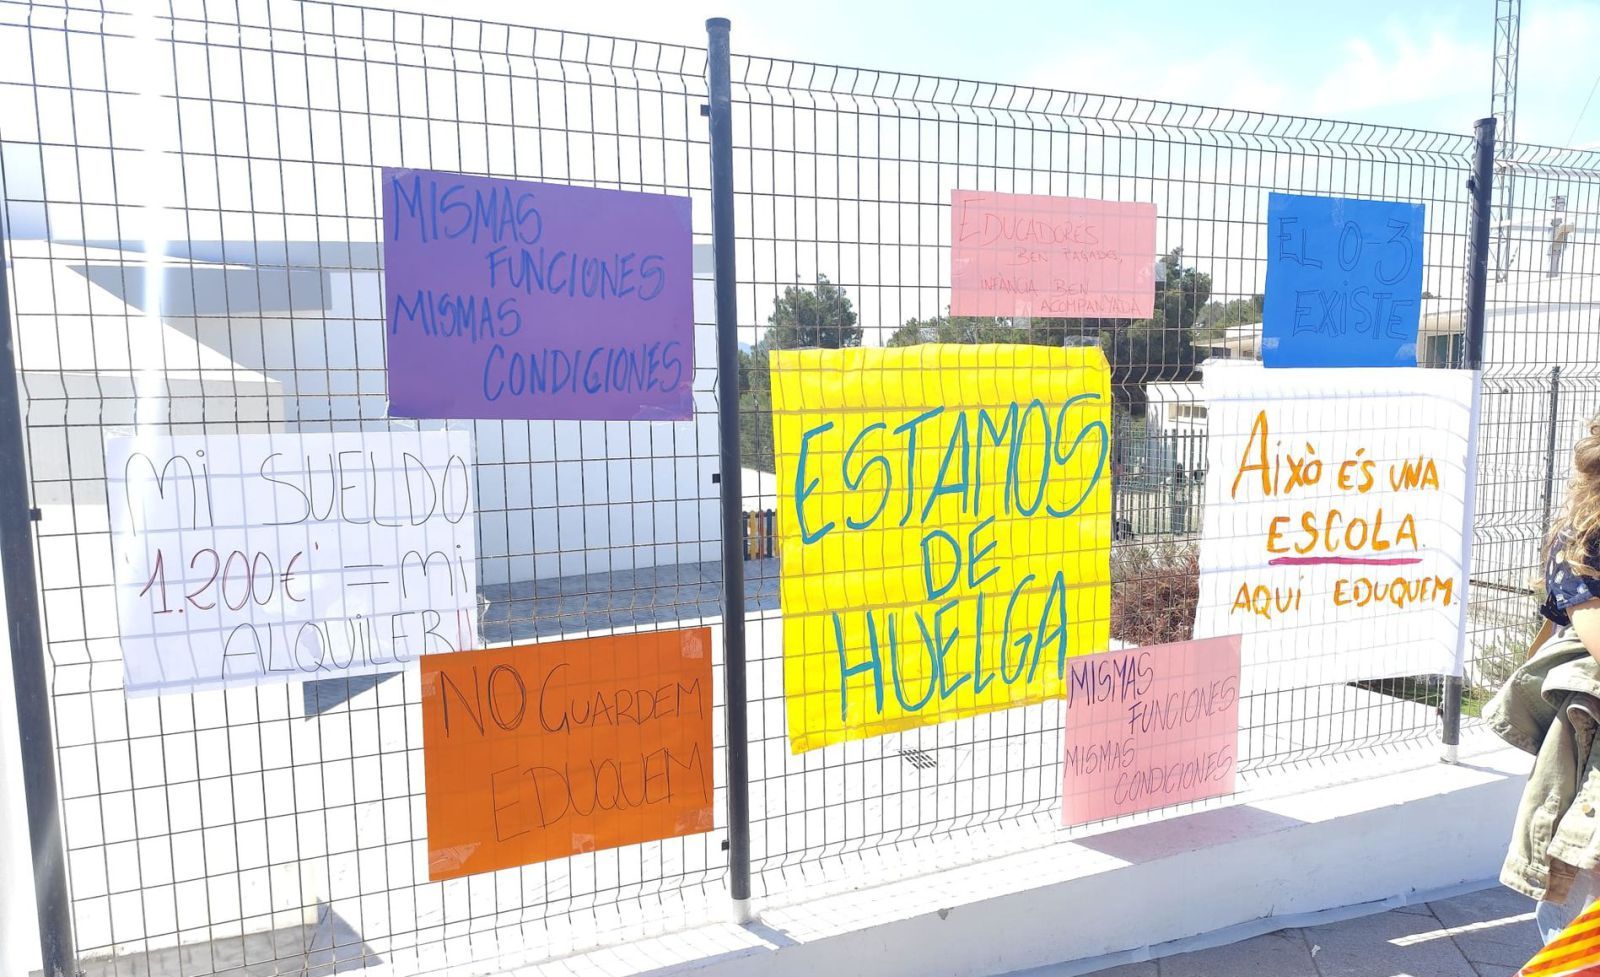 MISMAS
FUNCIONES
MISMAS
CONDICIONES
MI SUELDO
1.200€ = MI
ALQUILER!!
NO GUARDEM
EDUQUEM
ESTAMOS
DE
HUELGA
EDUCADORES
BEN PAGADES,
INFÀNCIA BEN
ACOMPANYADA
EL 0-3
EXISTE
Això ÉS UNA
ESCOLA.
AQUÍ EDUQUEM.
MISMAS
FUNCIONES
MISMAS
CONDICIONES